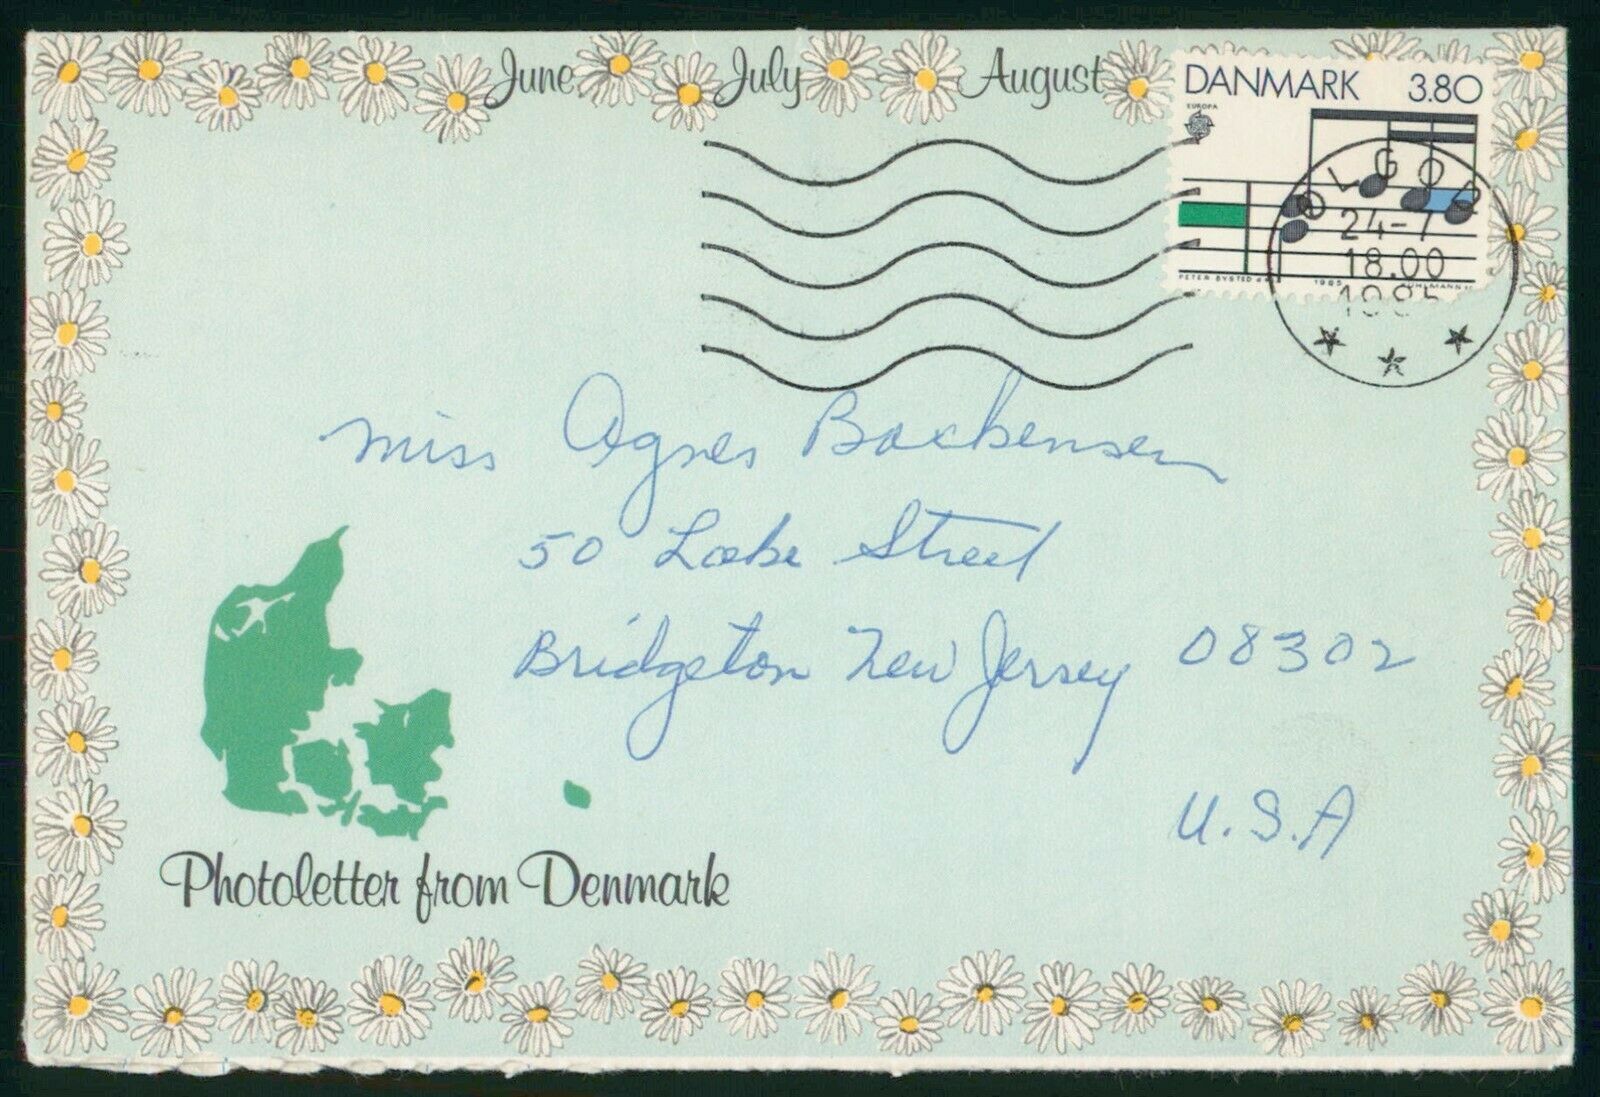 June July August
DANMARK 3.80
EUROPA
24-7
18.00
1985
PETER BYSTED 1985
miss Agnes Backensen
50 Lake Street
Bridgeton New Jersey 08302
U.S.A
Photoletter from Denmark